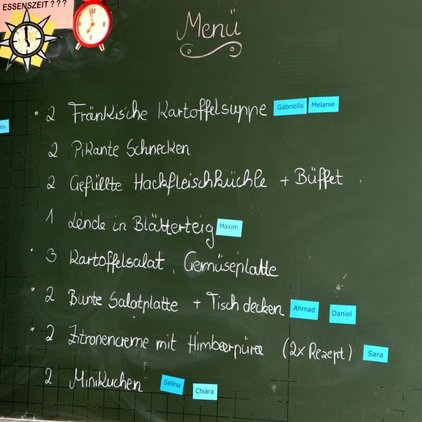 ESSENSZEIT ???
Menü
2 Fränkische Kartoffelsuppe Gabriella Melanie
2 Pikante Schnecken
2 Gefüllte Hackfleischküchle + Büffet
1 Lende in Blätterteig Maxim
3 Kartoffelsalat, Gemüseplatte
2 Bunte Salatplatte + Tisch decken Ahmad Daniel
2 Zitronencreme mit Himbeerpüree (2x Rezept) Sara
2 Minikuchen Selina Chiara